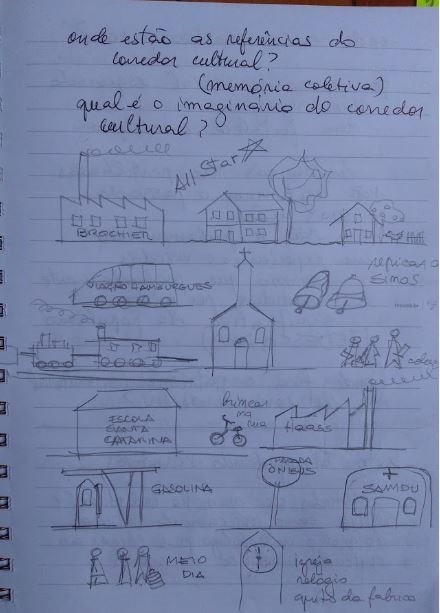 onde estão as referências do
corredor cultural?
(memória coletiva)
qual é o imaginário do corredor
cultural?
All Star
BROCHIER
VIAÇÃO HAMBURGUES
repicar o
sinos
ESCOLA
SANTA
CATARINA
brincar
na
rua
Haass
GASOLINA
PARADA
ÔNIBUS
SAMDU
MEIO
DIA
igreja
relógio
grito da fabrica